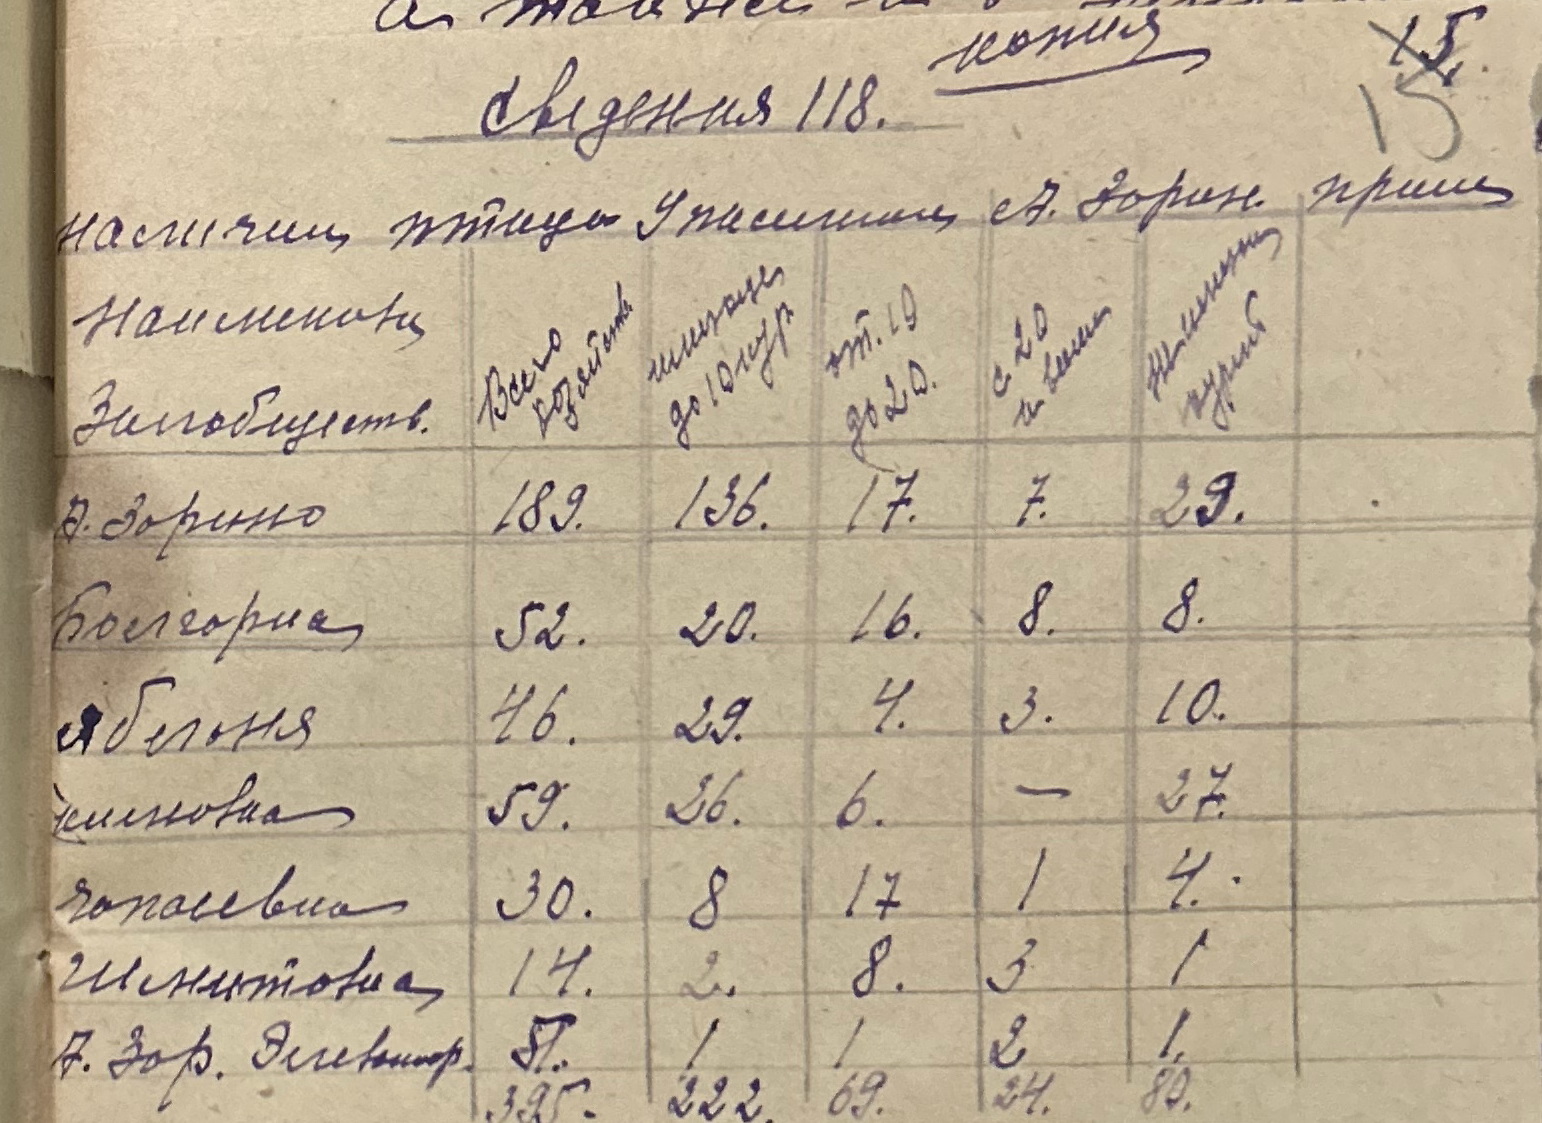 копия
15.
15
Сведения 118.
наличии птицы У населения А. Зорин. прим
Наименован Всего хозяйств. имеющие до 10 кур от. 10 до 20. с 20 и выше Не имеющи курей
Земобществ.
А. Зорино 189. 136. 17. 7. 29.
Болгорка 52. 20. 16. 8. 8.
Яблоня 46. 29. 4. 3. 10.
59. 26. 6. — 27.
Чапаевка 30. 8 17 1 4.
Шмитовка 14. 2. 8. 3 1
А. Зор. Элеватор. 5. 1 1 2 1.
395. 222. 69. 24. 80.